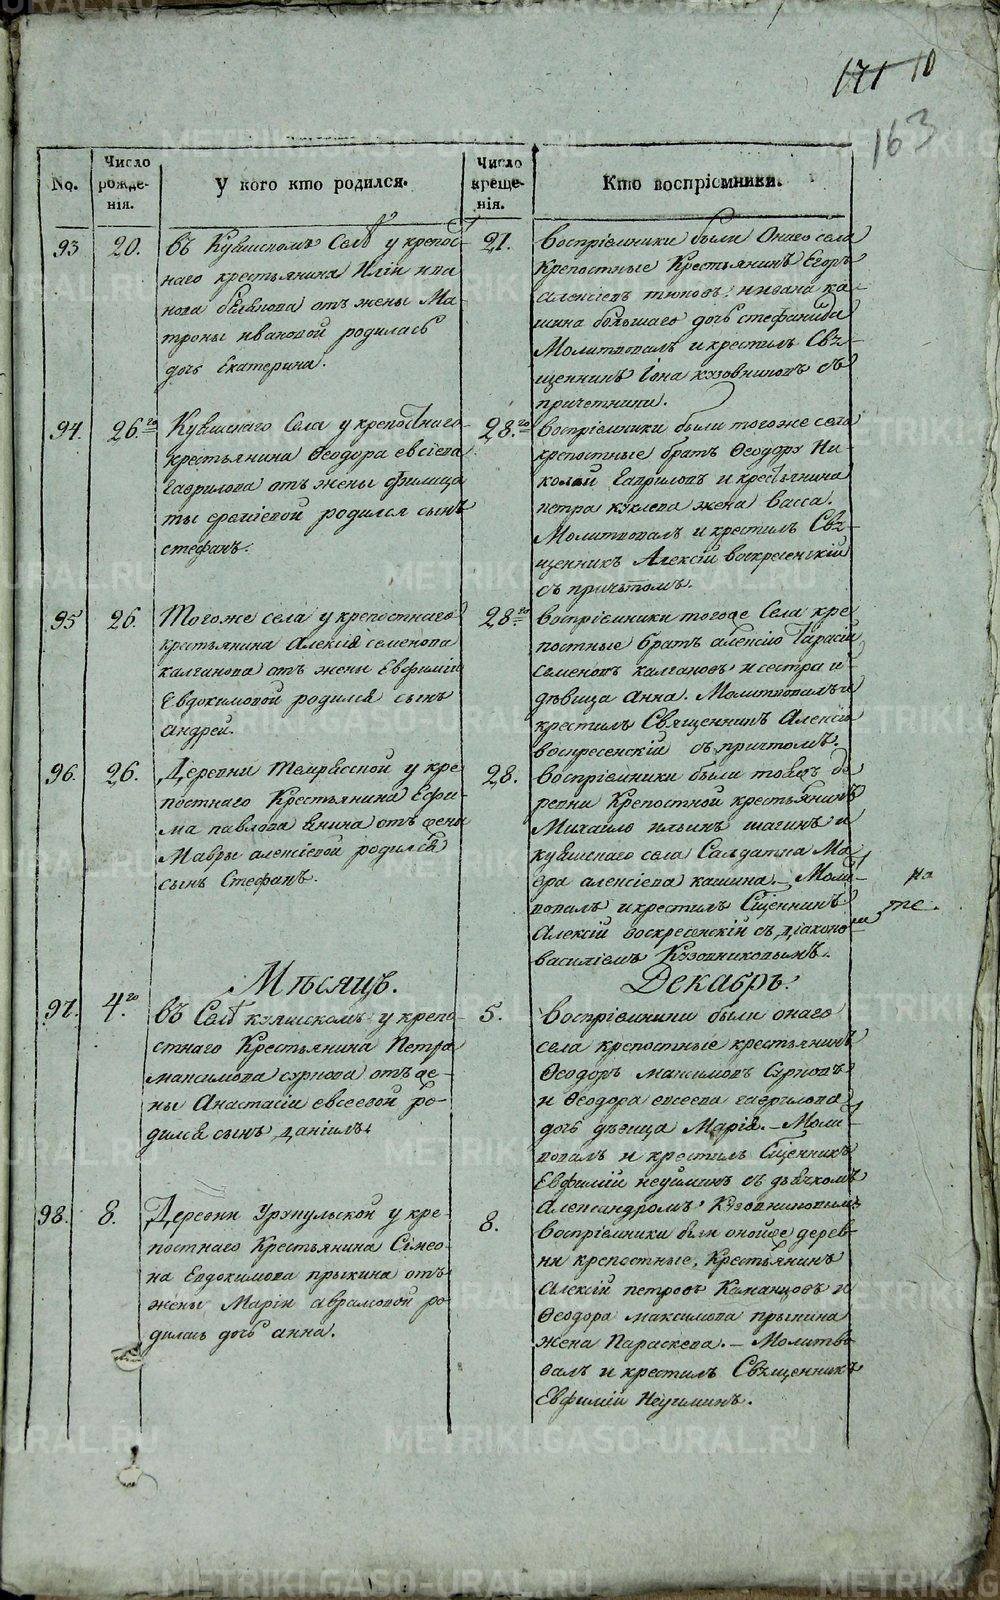 171 10
163
No.
Число рожде-нія.
У кого кто родился.
Число креще-нія.
Кто воспріемники.
93
20.
въ Куяшскомъ Селѣ у крепос-
наго крестьянина Иліи ива
нова отъ жены Ма-
троны ивановой родилась
дочь Екатерина.
21.
Воспріемники были Онаго села
Крепостные Крестьянинъ Егоръ
алексіевъ тюповъ, и ивана ка-
шина большаго дочь стефанида
Молитвовалъ и крестилъ Свя-
щенникъ Іона кузовниковъ съ
причетники.
94.
26.го
Куяшскаго Села у крепостнаго
крестьянина Ѳеодора евсіева
гаврилова отъ жены филица
ты еремѣевой родился сынъ
стефанъ.
28.го
воспріемники были тогоже села
крепостные братъ Ѳеодору Ни-
колай Гавриловъ и крестьянина
петра куклева жена Васса.
Молитвовалъ и крестилъ Свя-
щенникъ Алексій воскресенскій
съ причтомъ.
95
26.
Тогоже села у крепостнаго
крестьянина Алексія семенова
калганова отъ жены Евфиміи
Евдокимовой родился сынъ
андрей.
28.го
воспріемники тогоже Села кре
постные братъ алексію Тарасій
семеновъ калгановъ и сестра и
дѣвица анна. Молитвовалъ и
крестилъ Священникъ Алексій
воскресенскій съ причтомъ.
96.
26.
Деревни Темрясской у кре
постнаго Крестьянина Ефи-
ма павлова янина отъ жены
Мавры алексіевой родился
сынъ Стефанъ.
28.
воспріемники были тояжъ де
ревни Крепостной крестьянинъ
Михайло ильинъ шагинъ и
куяшскаго села Салдатка Ма
ѳра алексіева кашина. Моли
вовалъ и крестилъ Сщенникъ
Алексій воскресенскій съ діаконо
василіемъ Кузовниковымъ.
на
те.
Мѣсяцъ.
Декабрь.
97.
4.го
въ Селѣ куяшскомъ у крепо-
стнаго Крестьянина Петра
максимова сурнова отъ же-
ны Анастасіи евсеевой ро-
дился сынъ даніилъ.
5.
Воспріемники были онаго
села крепостные крестьянинъ
Ѳеодоръ максимовъ Сурновъ
и Ѳеодора евсеева гаврилова
дочь дѣвица Марія. Моли-
вовалъ и крестилъ Сщенникъ
Евфимій неуйминъ съ дьячкомъ
Александромъ Кузовниковымъ
98.
8.
Деревни Урукульской у кре-
постнаго Крестьянина Симео-
на Евдокимова прыкина отъ
жены Маріи аврамовой ро-
дилась дочь анна.
8.
воспріемники были онойже дерев-
ни крепостные, Крестьянинъ
Алексій петровъ Каманцовъ и
Ѳеодора максимова прыкина
жена Параскева. Молитво-
валъ и крестилъ Священникъ
Евфимій Неуиминъ.
METRIKI.GASO-URAL.RU